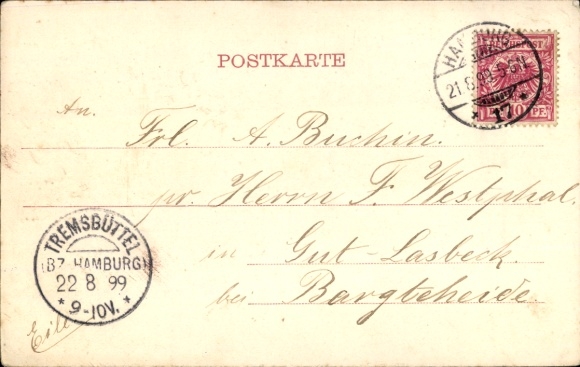 POSTKARTE
HAMBURG
21.8.99. 5-6N.
* 17 *
REICHSPOST
10 PF
An.
Frl. A. Buchin.
pr. Herrn F. Westphal.
in Gut-Lasbeck.
bei Bargteheide.
TREMSBÜTTEL
(BZ. HAMBURG)
22 8 99
* 9-10V. *